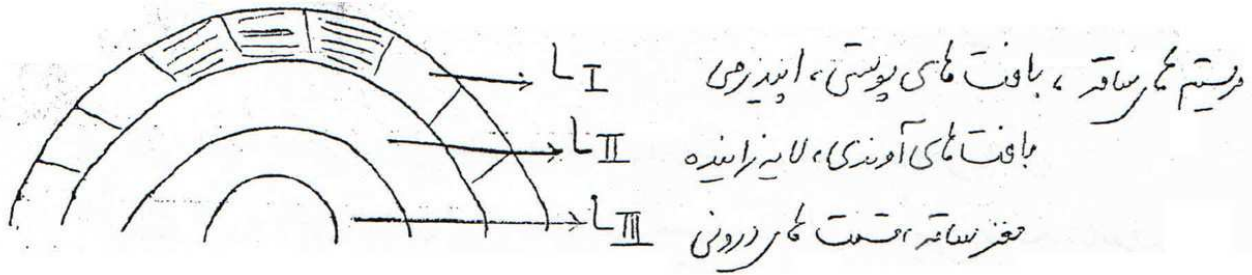 L I مریستم های ساقه ، بافت های پوستی ، اپیدرمی
L II بافت های آوندی ، لایه زاینده
L III مغز ساقه ، قسمت های درونی